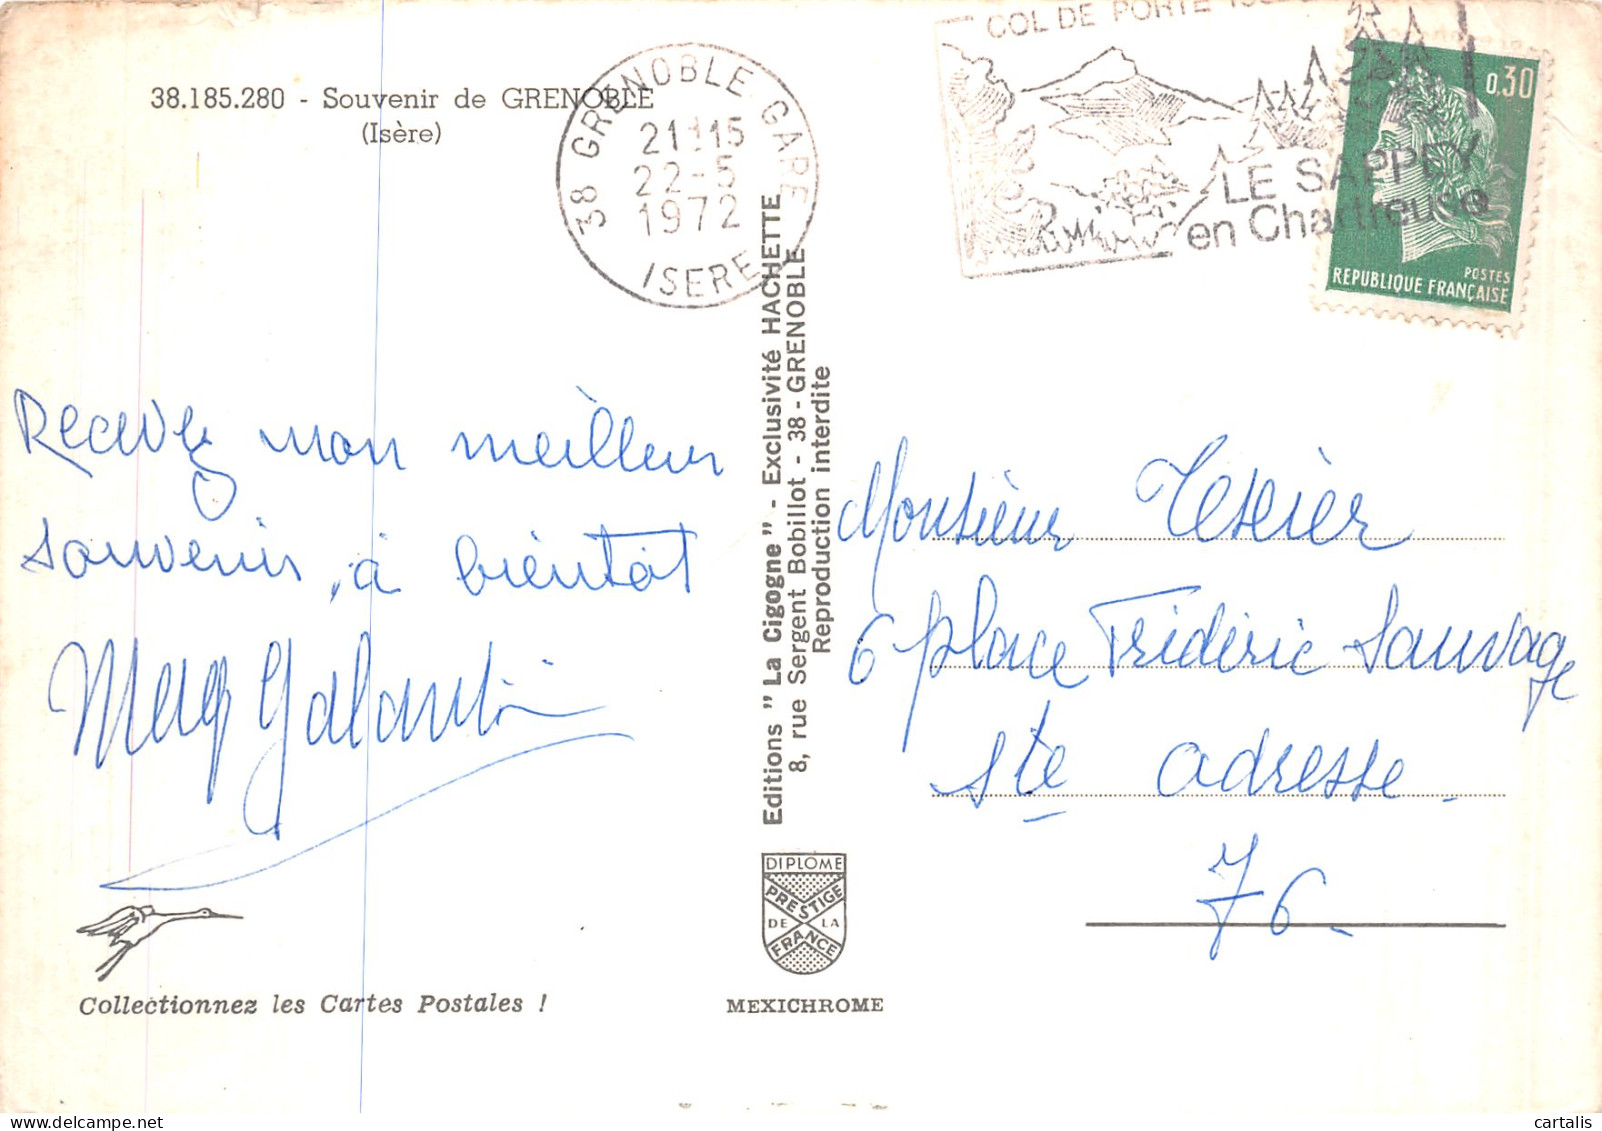 38.185.280 - Souvenir de GRENOBLE
(Isère)
38 GRENOBLE GARE
21H15
22-5
1972
ISERE
COL DE PORTE
LE SAPPEY
en Chartreuse
0,30
POSTES
REPUBLIQUE FRANÇAISE
Recevez mon meilleur
souvenir, à bientôt
Galantin
Editions "La Cigogne" - Exclusivité HACHETTE
8, rue Sergent Bobillot - 38 - GRENOBLE
Reproduction interdite
Monsieur Tessier
6 place Frédéric Sauvage
Ste adresse.
76.
DIPLOME
PRESTIGE
DE LA
FRANCE
Collectionnez les Cartes Postales !
MEXICHROME
cartalis | delcampe.net